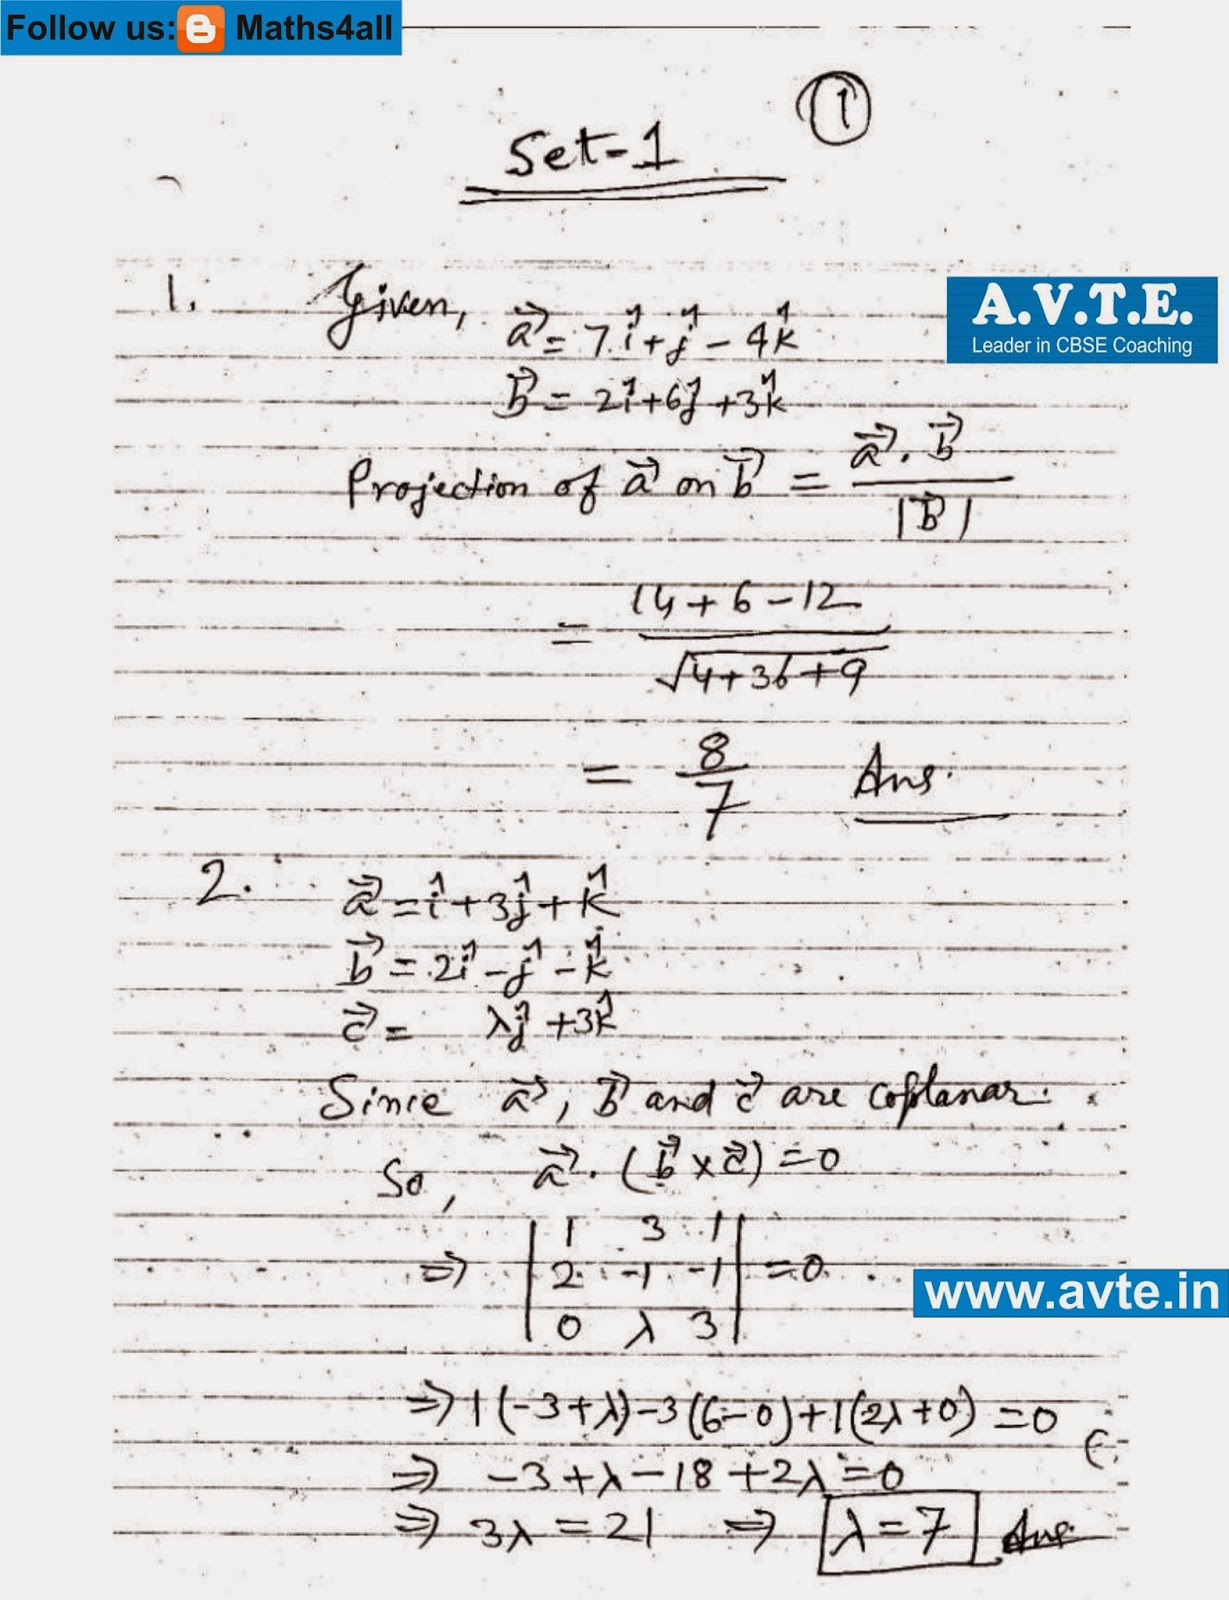 Follow us: Maths4all
1
Set-1
A.V.T.E.
Leader in CBSE Coaching
1. Given, a⃗ = 7î + ĵ - 4k̂
b⃗ = 2î + 6ĵ + 3k̂
Projection of a⃗ on b⃗ = a⃗ . b⃗ / |b⃗|
= 14 + 6 - 12 / √4+36+9
= 8/7 Ans.
2. a⃗ = î + 3ĵ + k̂
b⃗ = 2î - ĵ - k̂
c⃗ = λĵ + 3k̂
Since a⃗, b⃗ and c⃗ are coplanar.
So, a⃗ . (b⃗ × c⃗) = 0
⇒ | 1 3 1 |
| 2 -1 -1 | = 0
| 0 λ 3 |
www.avte.in
⇒ 1(-3+λ) - 3(6-0) + 1(2λ+0) = 0
⇒ -3 + λ - 18 + 2λ = 0
⇒ 3λ = 21 ⇒ λ = 7 Ans.